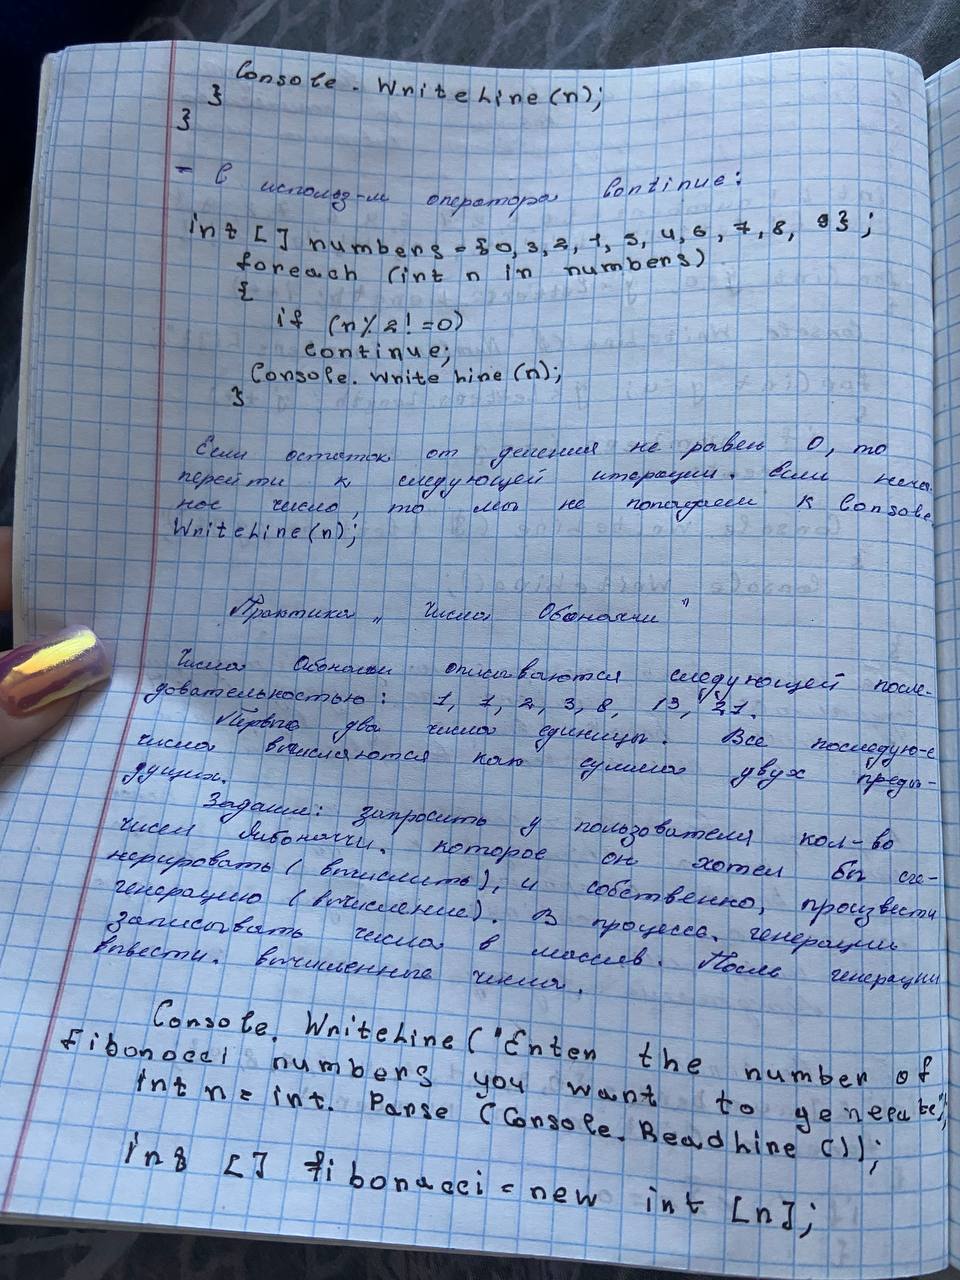 Console. WriteLine(n);
}
}
- С использ-м оператора continue:
int [] numbers = {0, 3, 2, 1, 5, 4, 6, 7, 8, 9};
foreach (int n in numbers)
{
if (n % 2 != 0)
continue;
Console. WriteLine (n);
}
Если остаток от деления не равен 0, то
перейти к следующей итерации. Если нечё-
ное число, то мы не попадаем к Console.
WriteLine(n);
Практика „ Числа Фибоначчи"
Числа Фибоначчи описываются следующей после-
довательностью: 1, 1, 2, 3, 8, 13, 21.
Первые два числа единицы. Все последую-е
числа вычисляются как сумма двух преды-
дущих.
Задание: запросить у пользователя кол-во
чисел Фибоначчи. которое он хотел бы сге-
нерировать (вычислить), и собственно, произвести
генерацию (вычисление). В процессе. генерации
записывать числа в массив. После генерации
вывести. вычисленные числа.
Console. WriteLine ("Enter the number of
Fibonacci numbers you want to generate");
int n = int. Parse (Console. ReadLine ());
int [] fibonacci = new int [n];